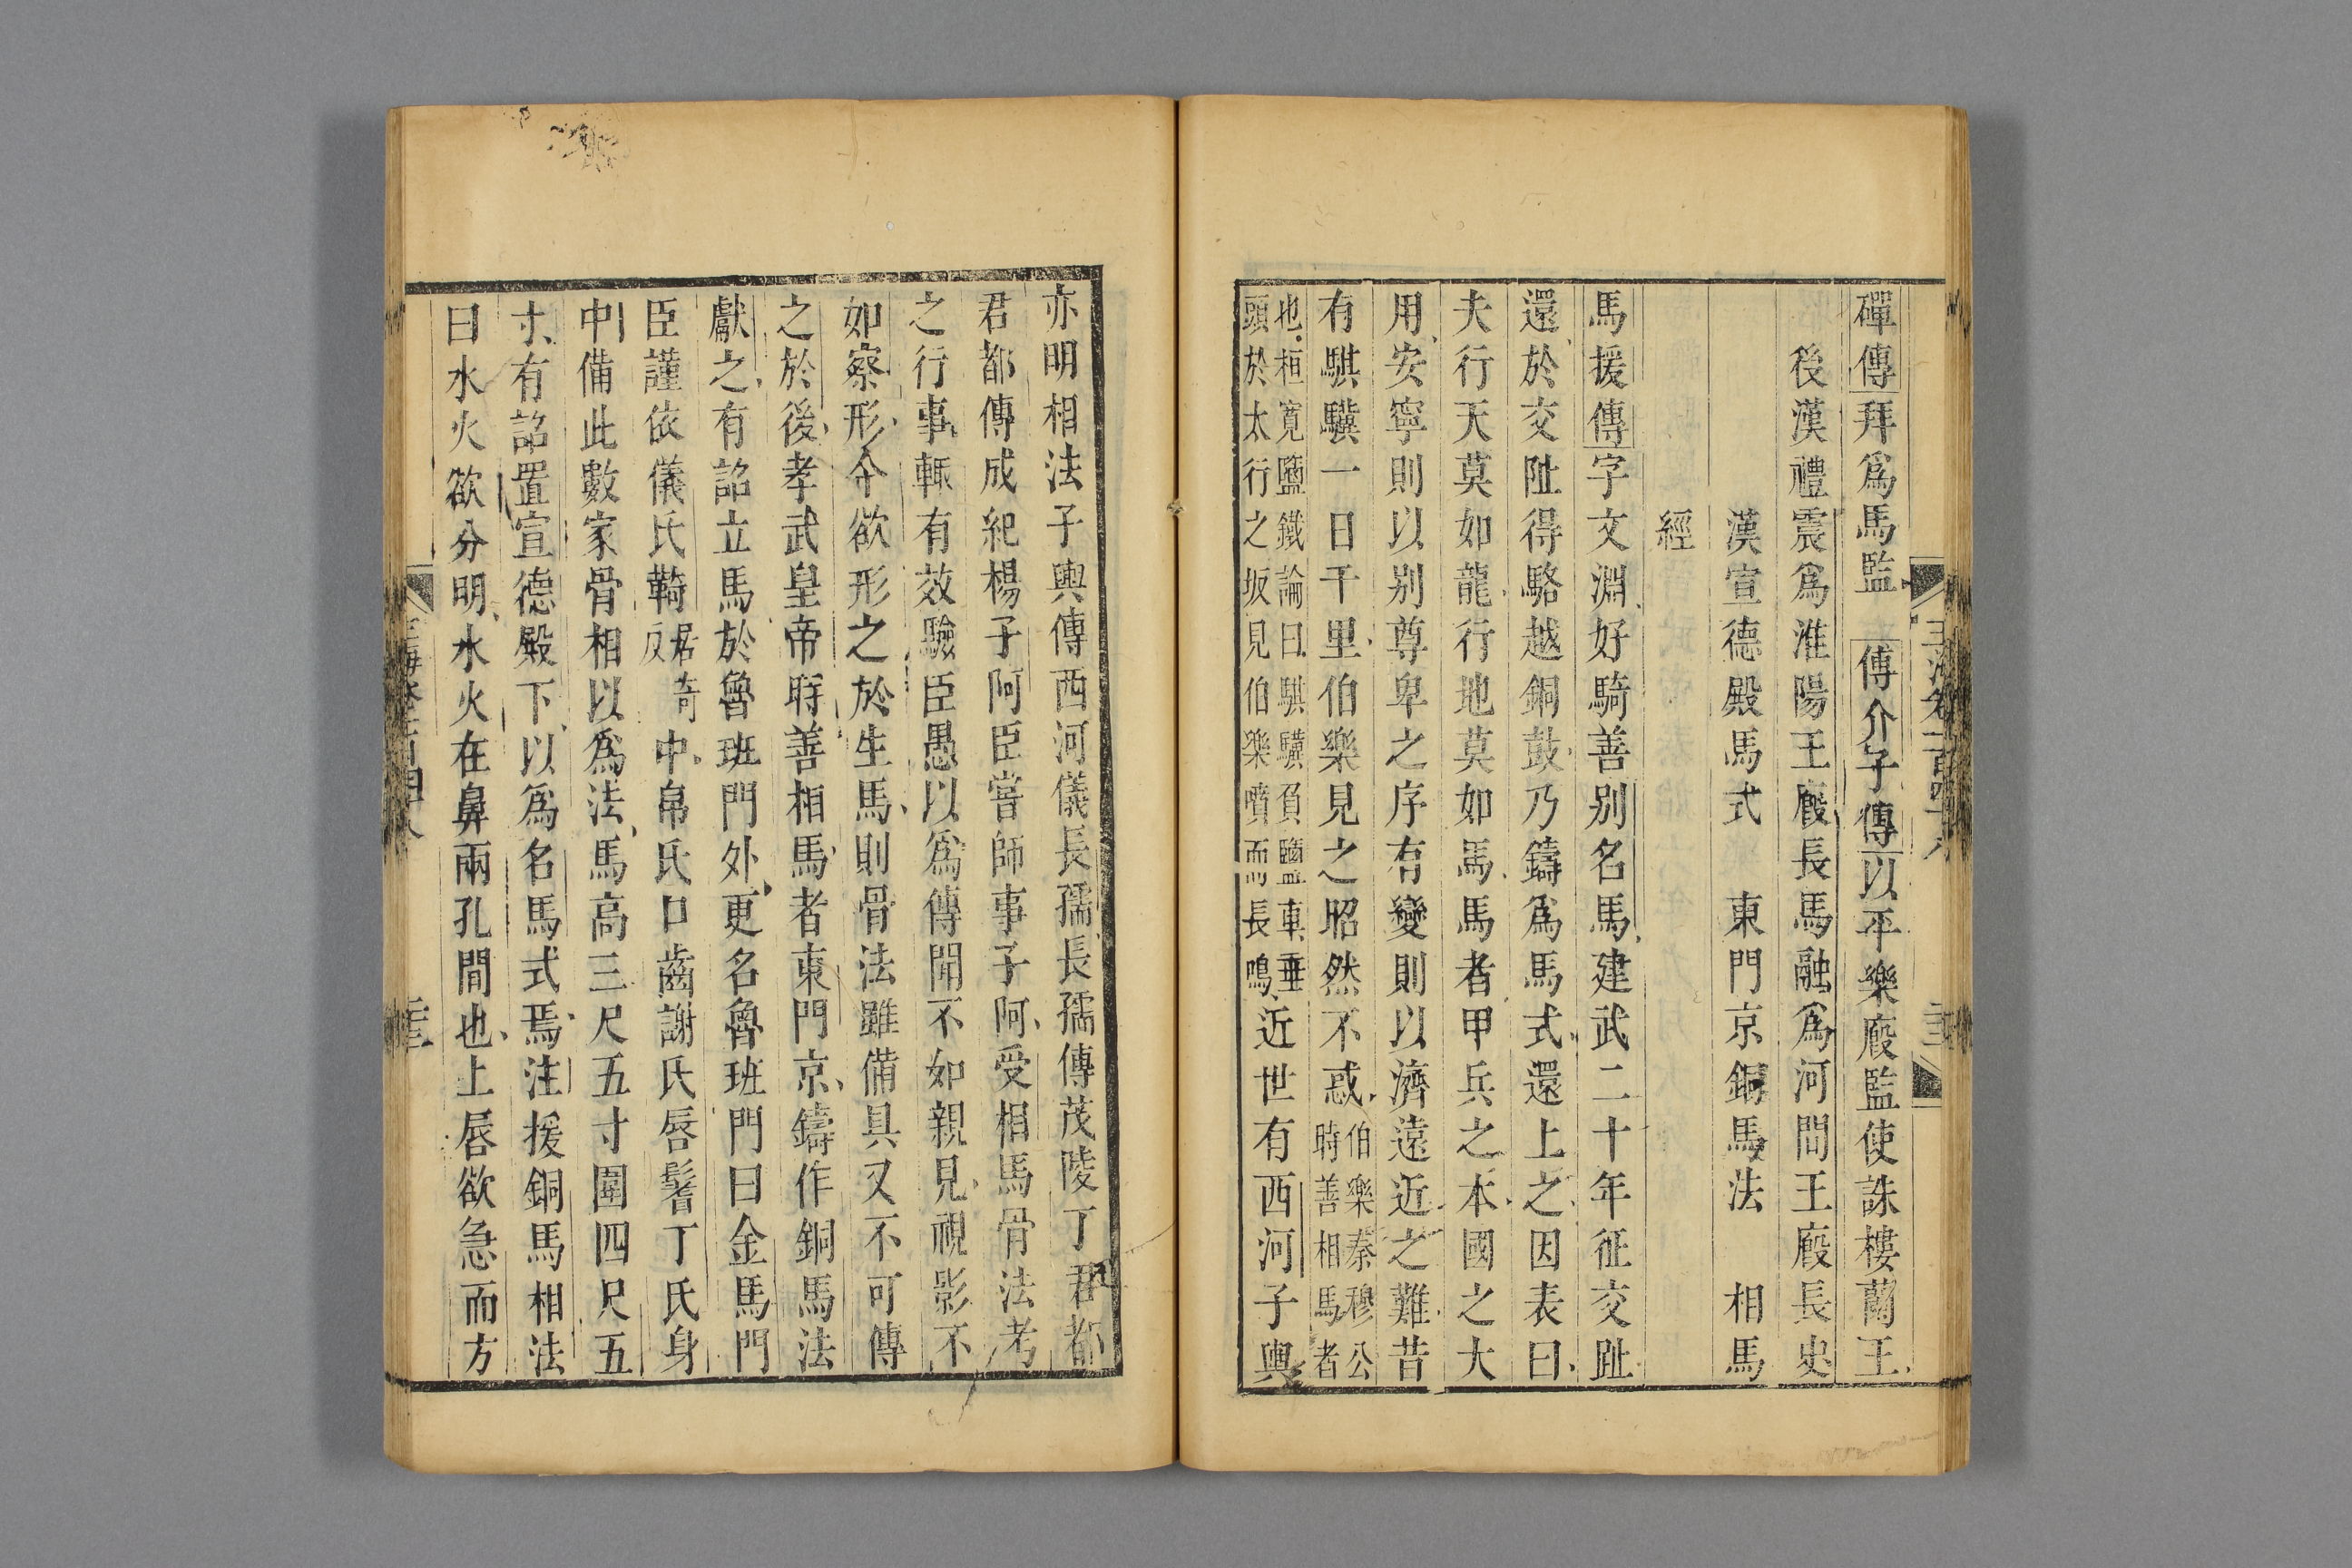 磾傳拜爲馬監　傅介子傳以平樂廄監使誅樓蘭王
後漢禮震爲淮陽王廄長馬融爲河間王廄長史
漢宣德殿馬式　東門京銅馬法　相馬
經
馬援傳字文淵好騎善别名馬建武二十年征交趾
還於交阯得駱越銅鼓乃鑄爲馬式還上之因表曰
夫行天莫如龍行地莫如馬馬者甲兵之本國之大
用安寧則以别尊卑之序有變則以濟遠近之難昔
有騏驥一日千里伯樂見之昭然不惑伯樂秦穆公時善相馬者
也桓寛鹽鐵論曰騏驥負鹽車垂頭於太行之坂見伯樂噴而長鳴近世有西河子輿
亦明相法子輿傳西河儀長孺長孺傳茂陵丁君都
君都傳成紀楊子阿臣嘗師事子阿受相馬骨法考
之行事輒有效驗臣愚以爲傳聞不如親見視影不
如察形今欲形之於生馬則骨法雖備具又不可傳
之於後孝武皇帝時善相馬者東門京鑄作銅馬法
獻之有詔立馬於魯班門外更名魯班門曰金馬門
臣謹依儀氏䩭居奇反中帛氏口齒謝氏唇鬐丁氏身
中備此數家骨相以爲法馬高三尺五寸圍四尺五
寸有詔置宣德殿下以爲名馬式焉注援銅馬相法
曰水火欲分明水火在鼻兩孔間也上唇欲急而方